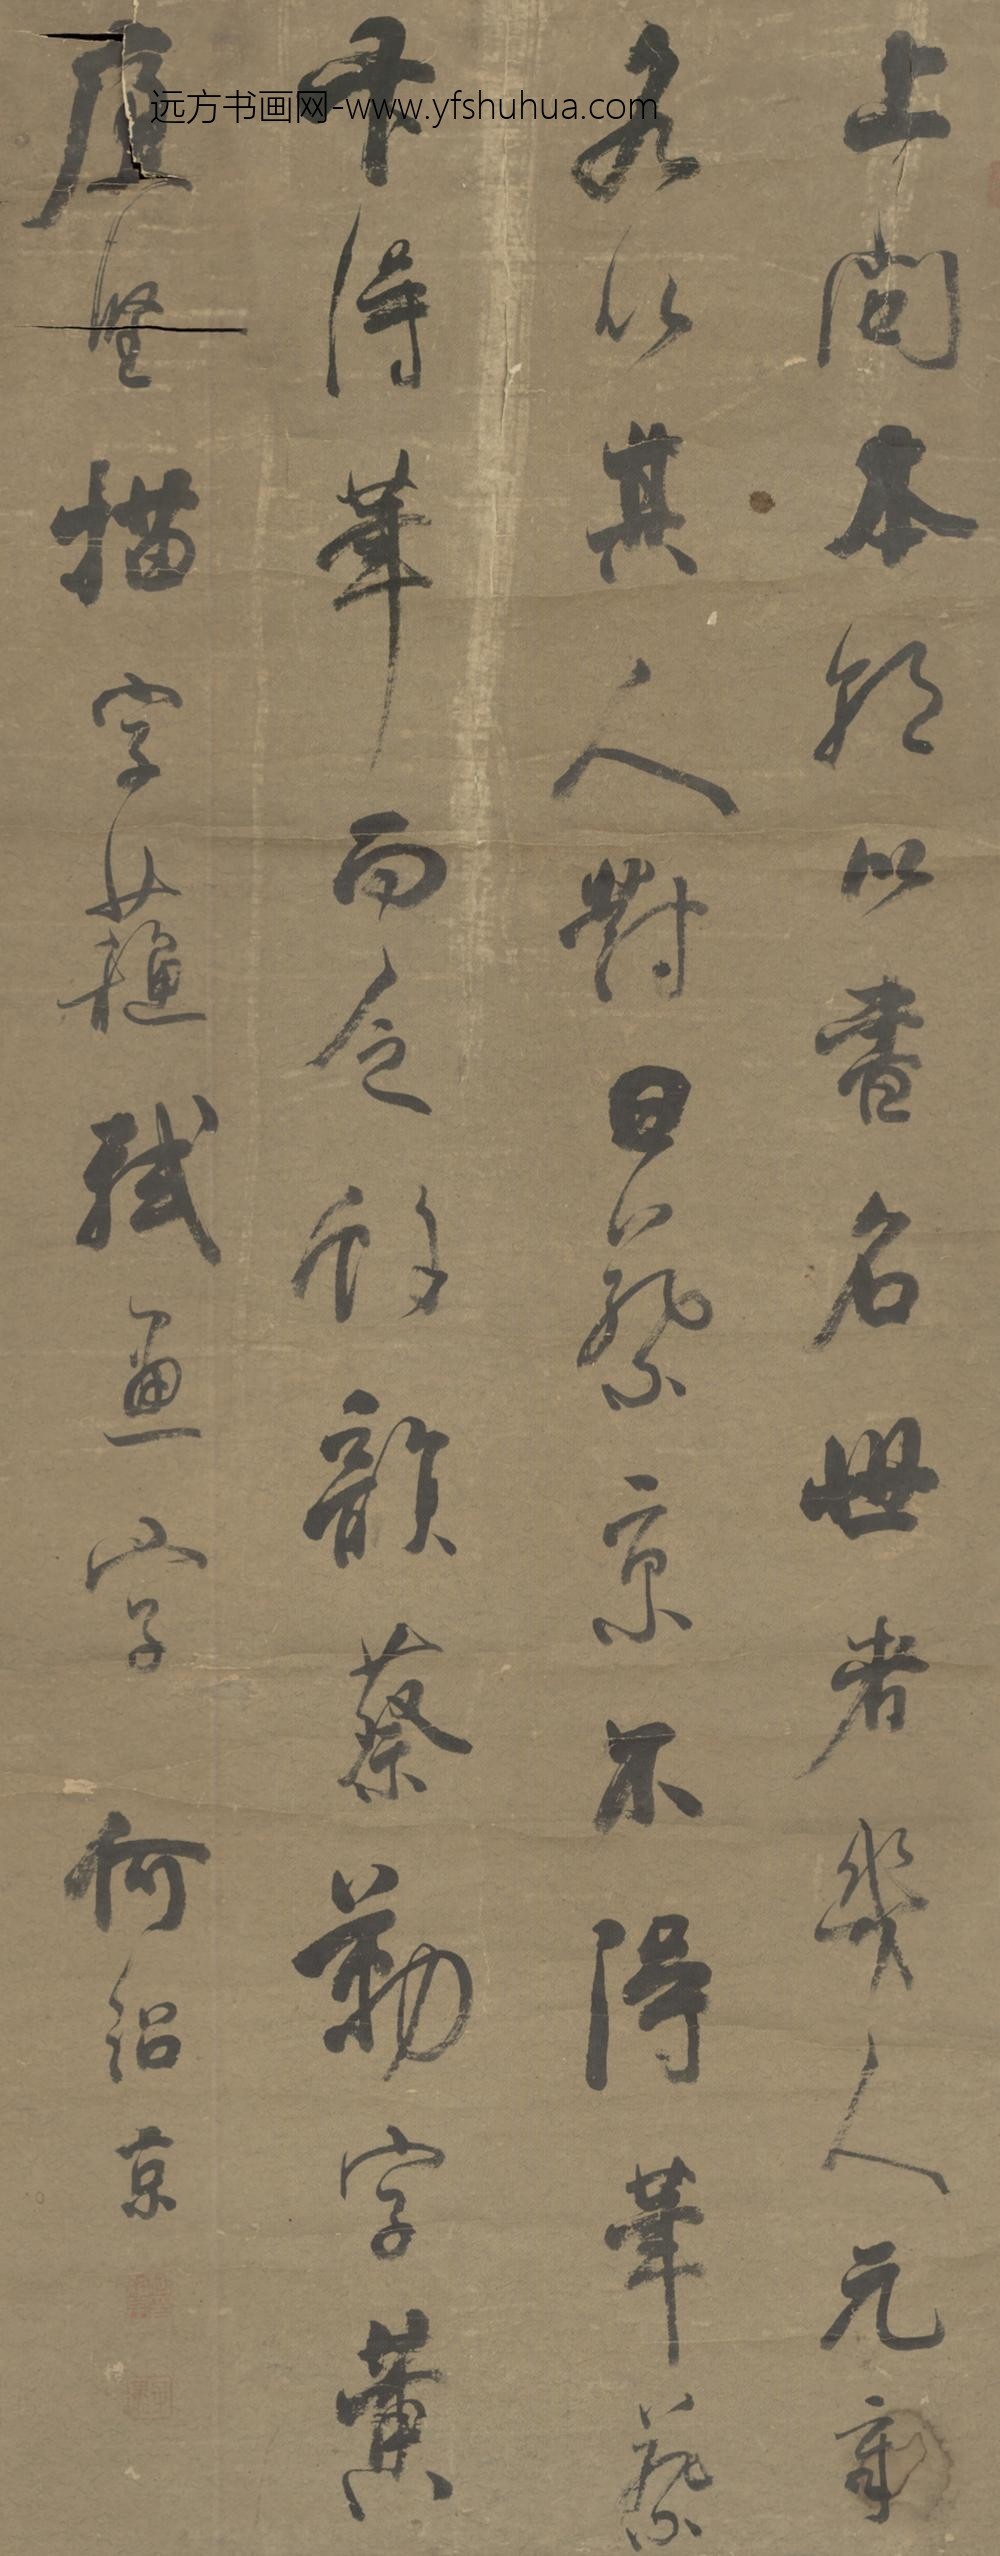 上问本朝以書名世者幾人元章
各以其人對曰蔡京不得筆蔡
卞得筆而乏欲韻蔡勒字黄
庭堅描字蘇軾畫字 何紹京
远方书画网-www.yfshuhua.com